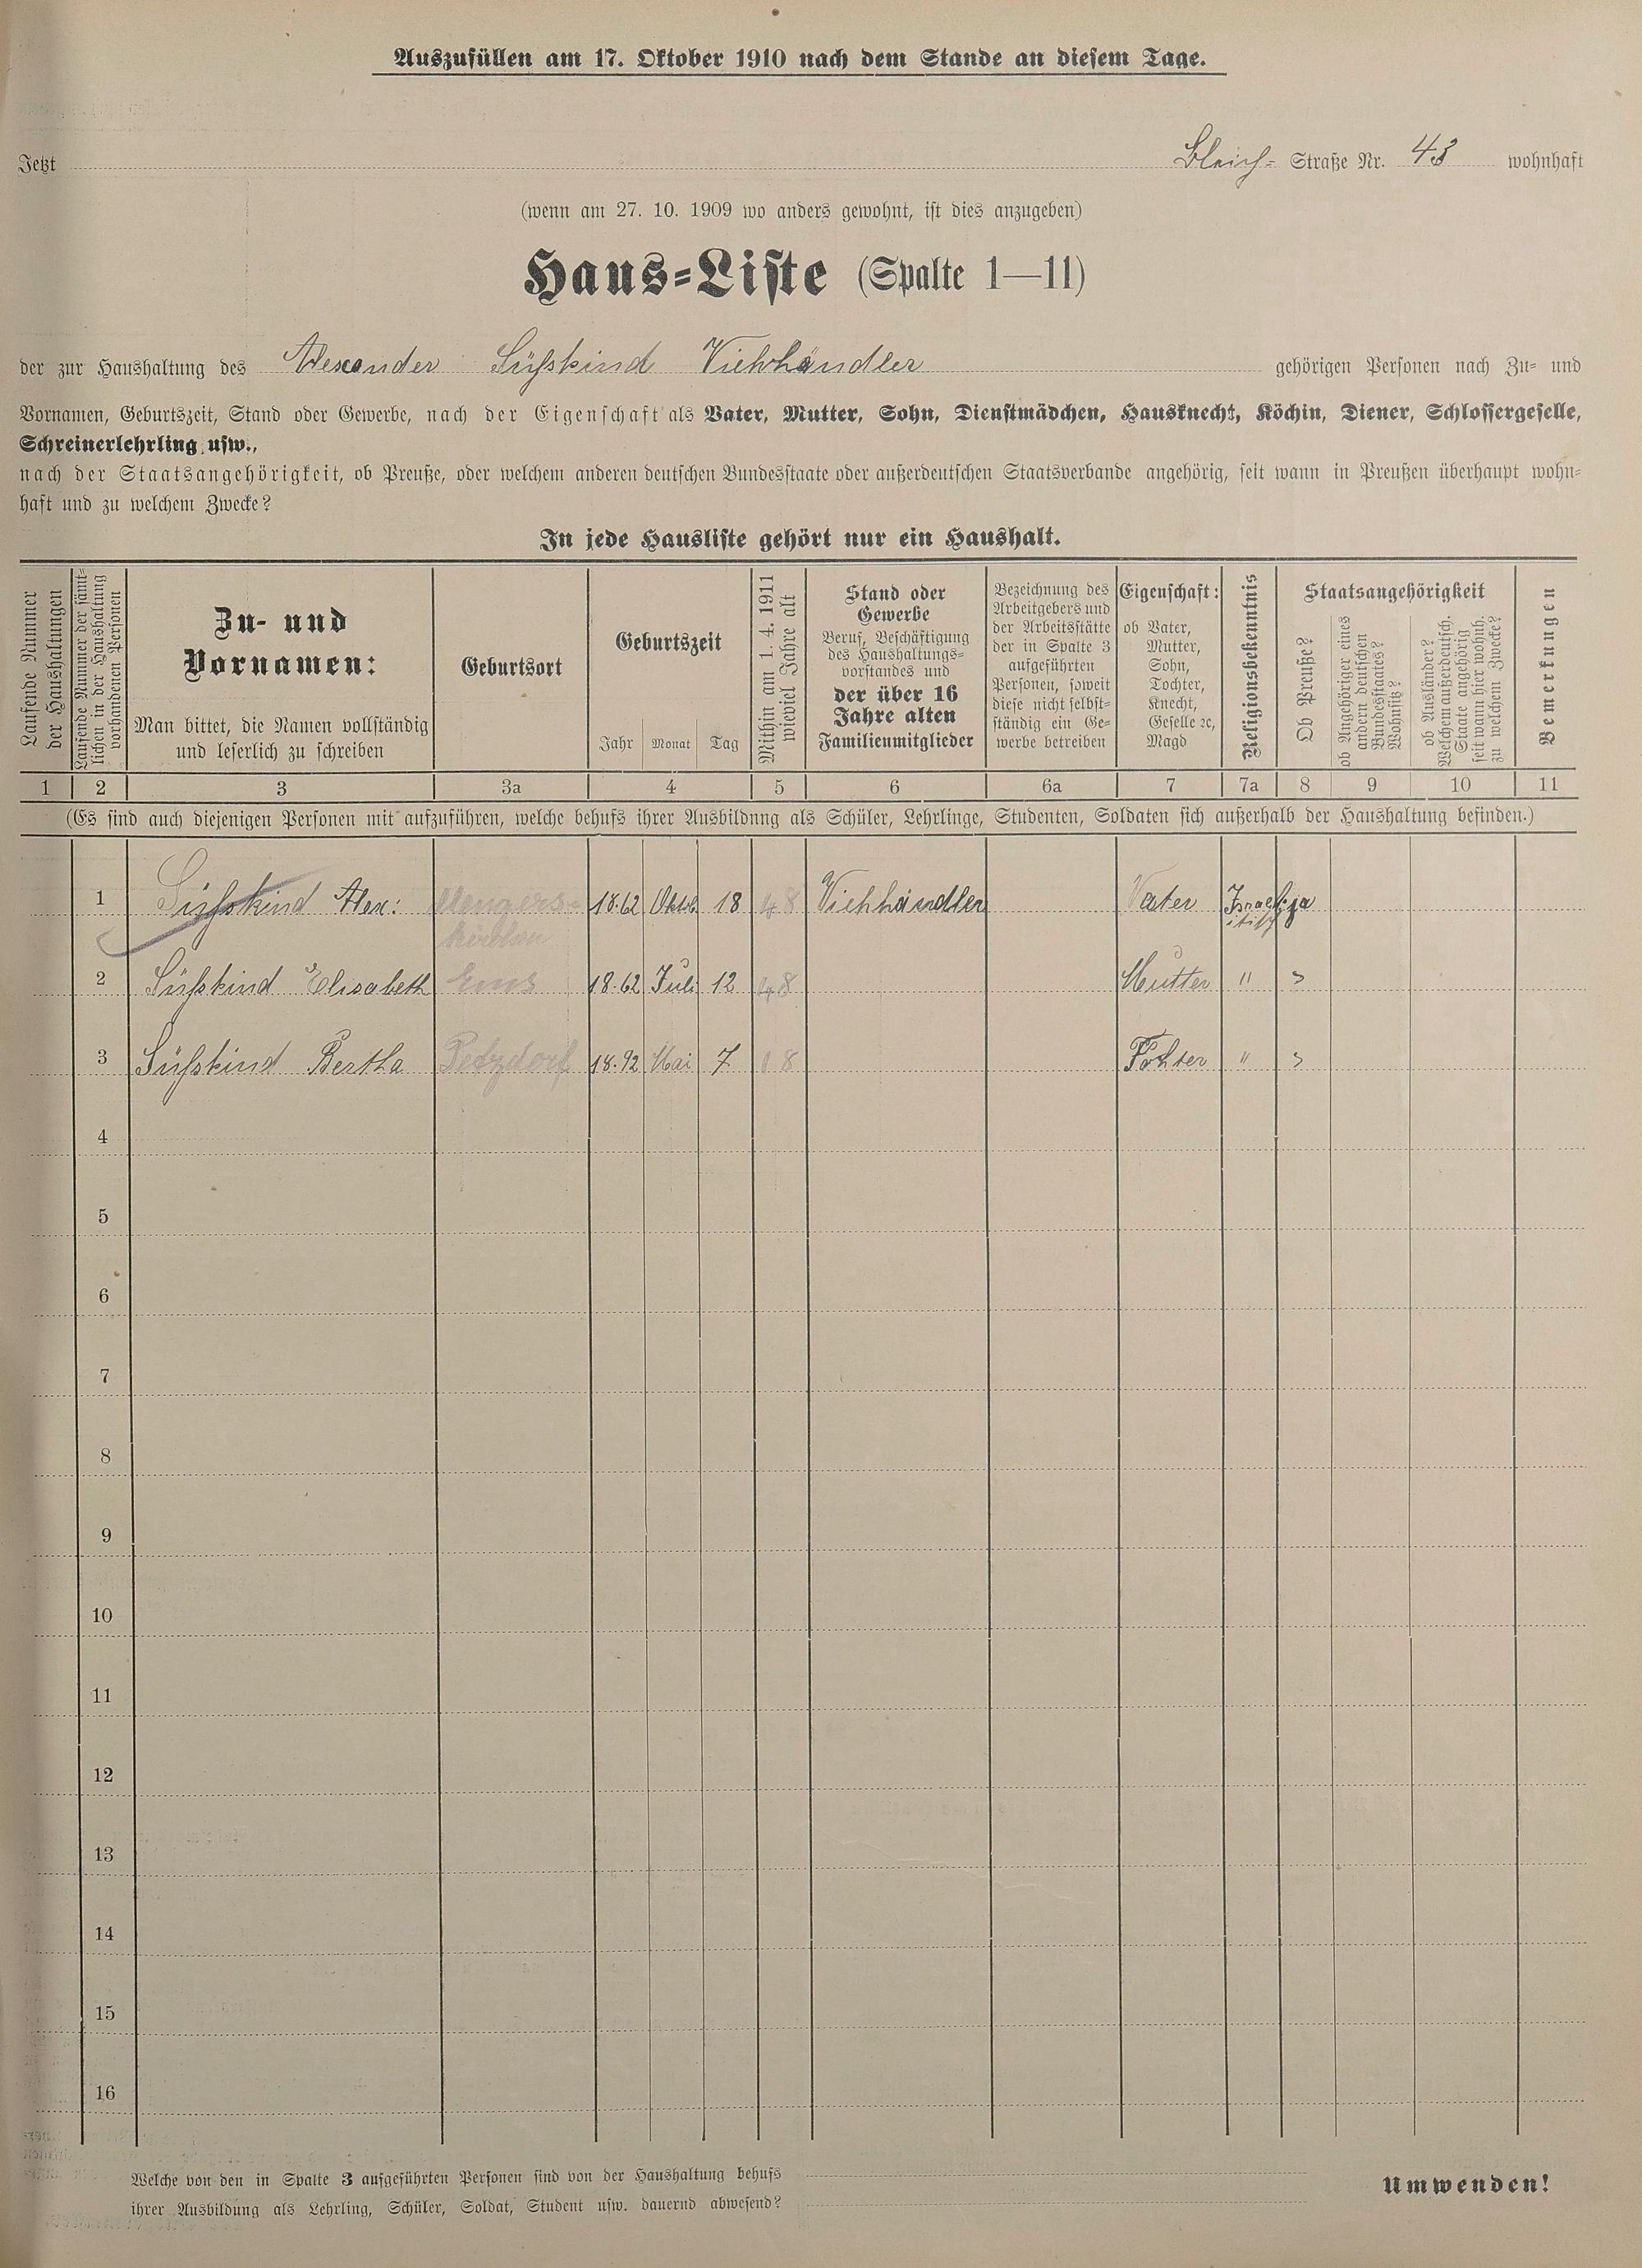 Auszufüllen am 17. Oktober 1910 nach dem Stande an diesem Tage.
Jetzt Bleich= Straße Nr. 43 wohnhaft
(wenn am 27. 10. 1909 wo anders gewohnt, ist dies anzugeben)
Haus=Liste (Spalte 1—11)
der zur Haushaltung des Alexander Süßskind Viehhändler gehörigen Personen nach Zu= und
Vornamen, Geburtszeit, Stand oder Gewerbe, nach der Eigenschaft als Vater, Mutter, Sohn, Dienstmädchen, Hausknecht, Köchin, Diener, Schlossergeselle,
Schreinerlehrling usw.,
nach der Staatsangehörigkeit, ob Preuße, oder welchem anderen deutschen Bundesstaate oder außerdeutschen Staatsverbande angehörig, seit wann in Preußen überhaupt wohn=
haft und zu welchem Zwecke?
In jede Hausliste gehört nur ein Haushalt.
Laufende Nummer
der Haushaltungen
Laufende Nummer der sämt=
lichen in der Haushaltung
vorhandenen Personen
Zu- und
Vornamen:
Man bittet, die Namen vollständig
und leserlich zu schreiben
Geburtsort
Geburtszeit
Jahr Monat Tag
Mithin am 1. 4. 1911
wieviel Jahre alt
Stand oder
Gewerbe
Beruf, Beschäftigung
des Haushaltungs=
vorstandes und
der über 16
Jahre alten
Familienmitglieder
Bezeichnung des
Arbeitgebers und
der Arbeitsstätte
der in Spalte 3
aufgeführten
Personen, soweit
diese nicht selbst=
ständig ein Ge=
werbe betreiben
Eigenschaft:
ob Vater,
Mutter,
Sohn,
Tochter,
Knecht,
Geselle ꝛc,
Magd
Religionsbekenntnis
Staatsangehörigkeit
Ob Preuße?
ob Angehöriger eines
andern deutschen
Bundesstaates?
Wohnsitz?
ob Ausländer?
Welchem außerdeutsch.
Staate angehörig
seit wann hier wohnh.
zu welchem Zwecke?
Bemerkungen
1 2 3 3a 4 5 6 6a 7 7a 8 9 10 11
(Es sind auch diejenigen Personen mit aufzuführen, welche behufs ihrer Ausbildung als Schüler, Lehrlinge, Studenten, Soldaten sich außerhalb der Haushaltung befinden.)
1 Süßskind Alex: Mengers= 18.62 Oktob 18 48 Viehhändler Vater Israel= ja
kirchen itisch
2 Süßskind Elisabeth Ems 18.62 Juli 12 48 Mutter " "
3 Süßskind Bertha Petzdorf 18.92 Mai 7 18 Tohter " "
4
5
6
7
8
9
10
11
12
13
14
15
16
Welche von den in Spalte 3 aufgeführten Personen sind von der Haushaltung behufs
ihrer Ausbildung als Lehrling, Schüler, Soldat, Student usw. dauernd abwesend?
Umwenden!